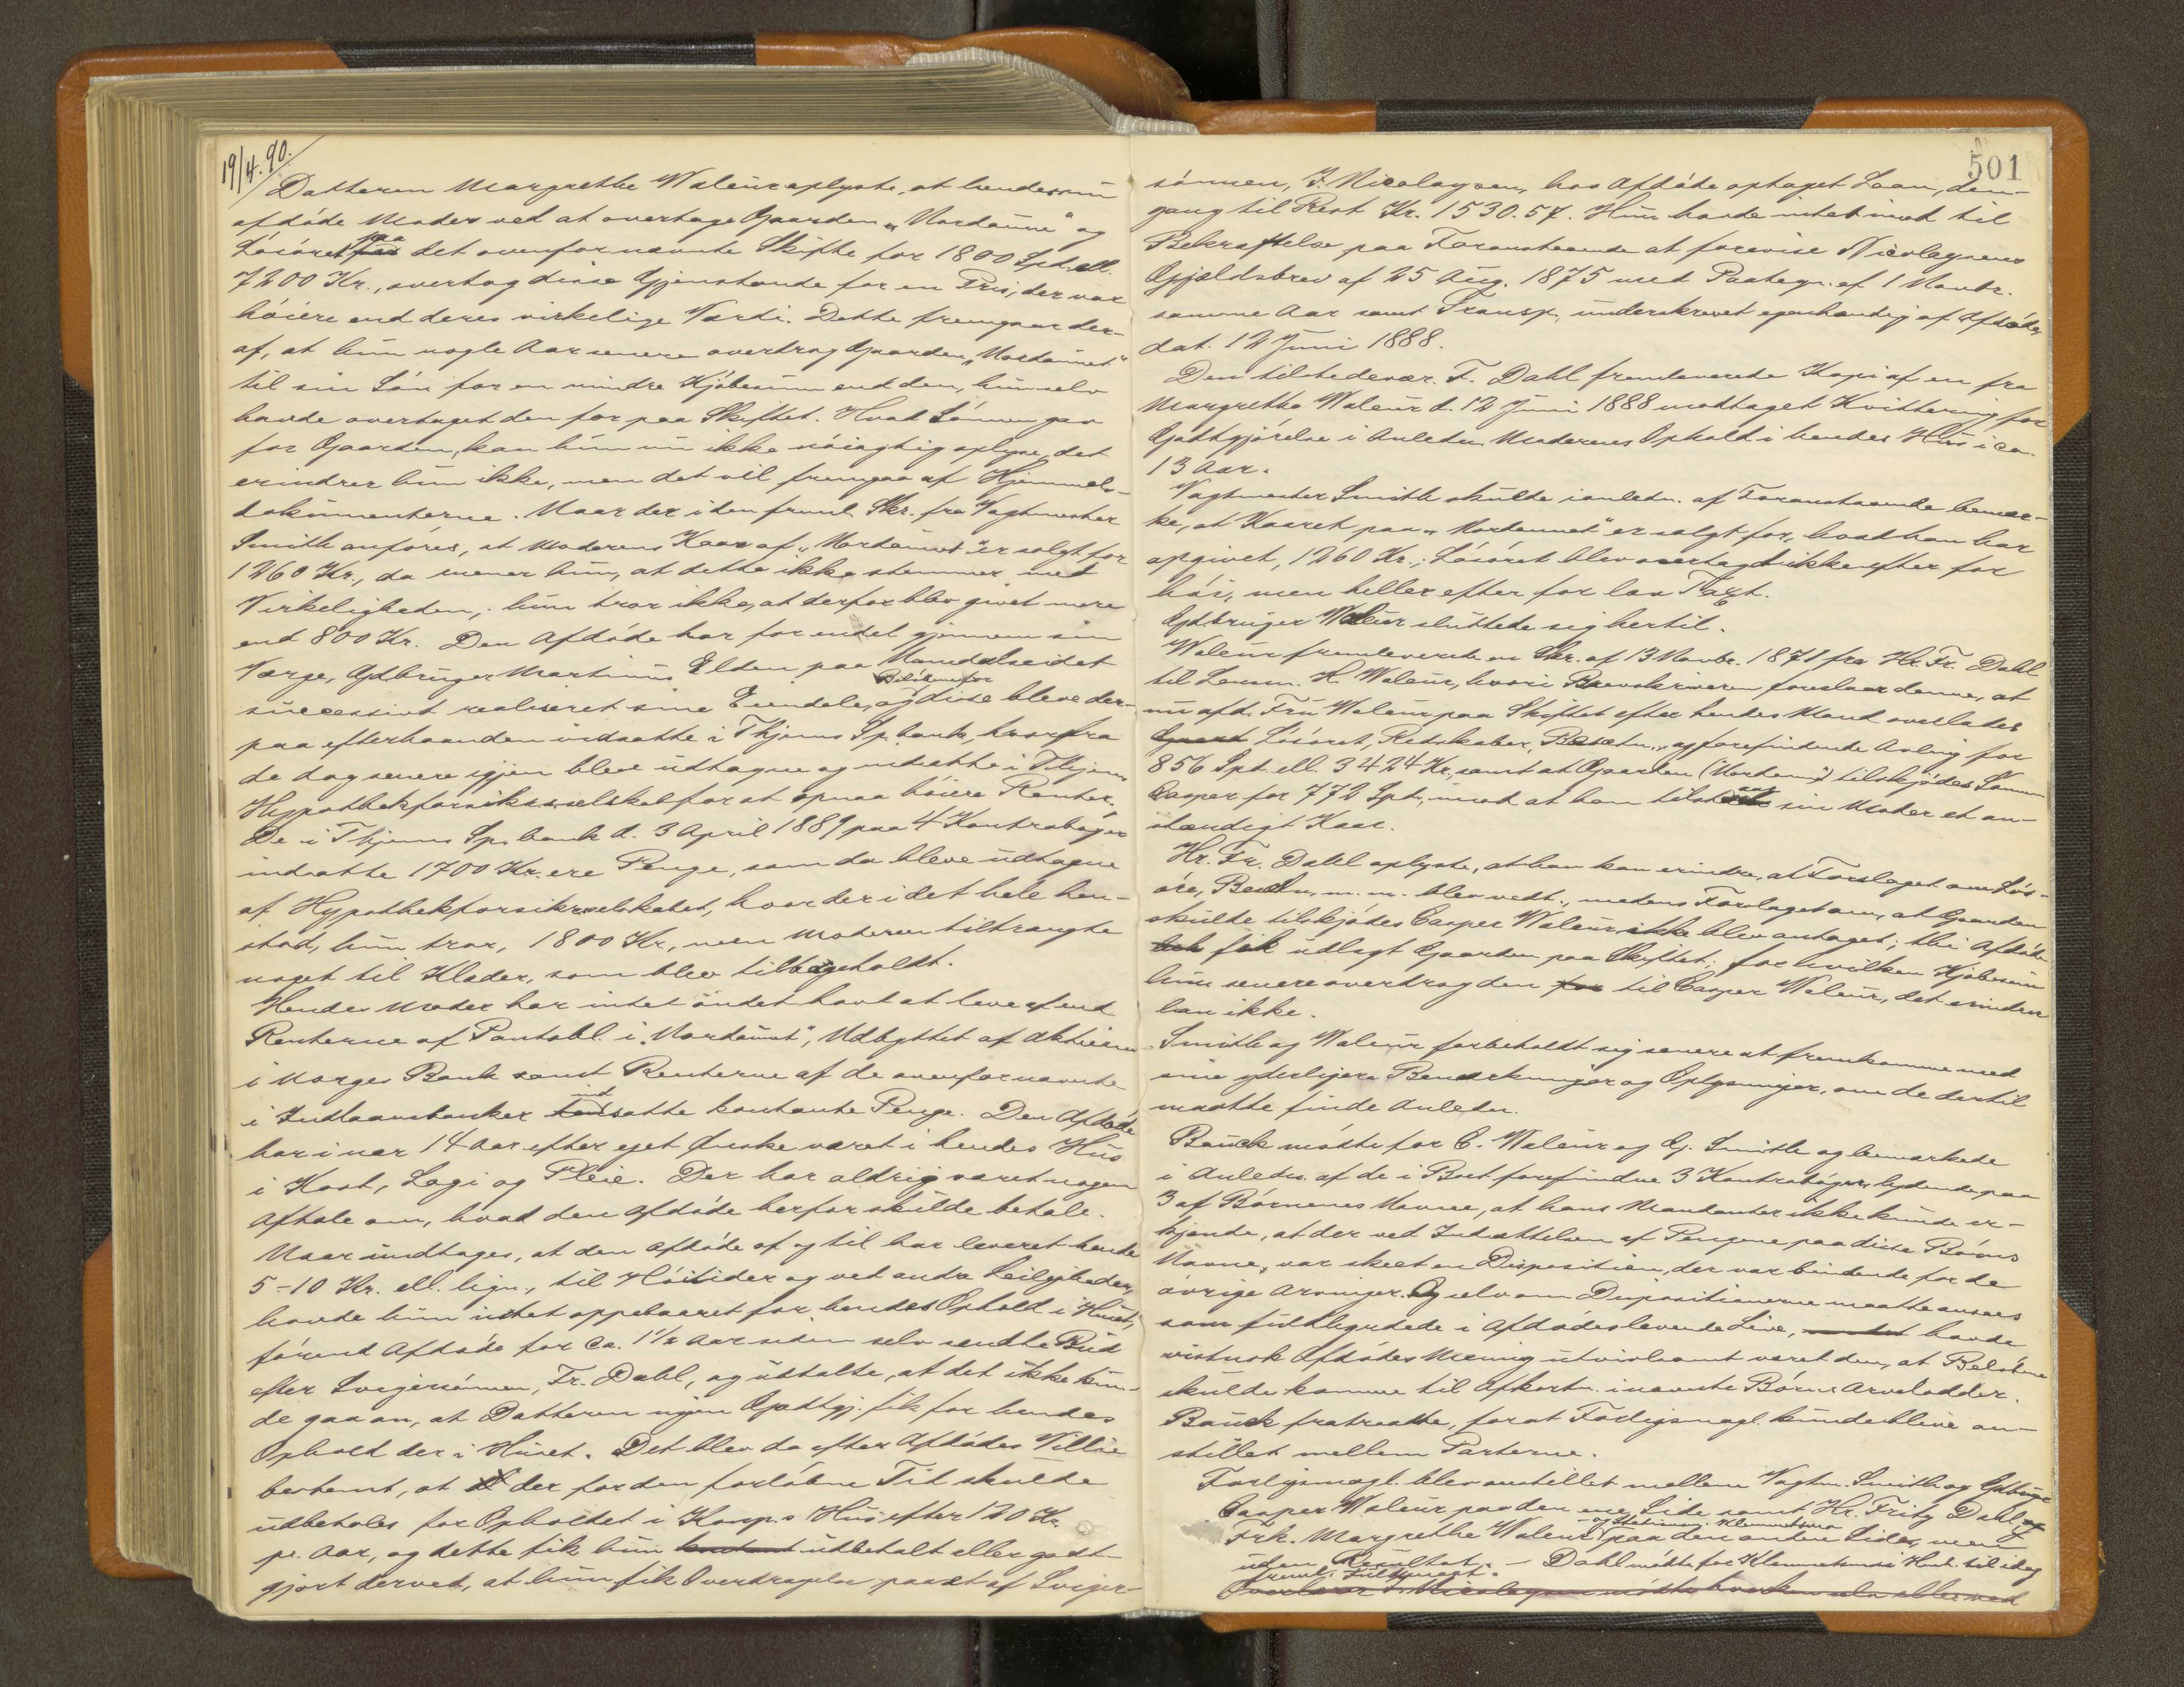 19/4. 90.
Datteren Margrethe Waleur oplyste, at hendes nu
afdöde Moder ved at overtage Gaarden „Nordaunet“ og
Lösöret paa det ovenfornævnte Skifte for 1800 Spd. ell.
7200 Kr., overtog disse Gjenstande for en Pris, der var
höiere end deres virkelige Værdi. Dette fremgaar der-
af, at hun nogle Aar senere overdrog Gaarden „Nordaunet“
til sin Sön for en mindre Kjöbesum end den, hun selv
havde overtaget den for paa Skiftet. Hvad Sönnen gav
for Gaarden, kan hun nu ikke nöiagtig oplyse, det
erindrer hun ikke, men det vil fremgaa af Hjemmels-
dokumenterne. Naar der i den freml. Skr. fra Vagtmester
Smith anföres, at Moderens Kaar af „Nordaunet“ er solgt for
1260 Kr., da mener hun, at dette ikke stemmer med
Virkeligheden; hun tror ikke, at derfor blev givet mere
end 800 Kr. Den Afdöde har for endel gjennem sin
Værge, Gdbruger Martinus Elden paa Namdalseidet
successivt realiseret sine Eiendele, og Belöbene for disse bleve der-
paa efterhaanden indsatte i Thjems Sp. bank, hvorfra
de dog senere igjen bleve udtagne og indsatte i Thjems
Hypothekforsikr.selskab for at opnaa höiere Renter.
De i Thjems Sp. bank d. 3 April 1889 paa 4 Kontraböger
indsatte 1700 Kr. ere Penge, som da bleve udtagne
af Hypothekforsikr.selskabet, hvor der i det hele hen-
stod, hun tror, 1800 Kr., men Moderen tiltrængte
noget til Klæder, som blev tilbageholdt.
Hendes Moder har intet andet havt at leve af end
Renterne af Pantobl. i „Nordaunet“, Udbyttet af Aktierne
i Norges Bank samt Renterne af de ovenfornævnte
i Indlaansbanker indsatte kontante Penge. Den Afdöde
har i nær 14 Aar efter eget Önske været i hendes Hus
i Kost, Logi og Pleie. Der har aldrig været nogen
Aftale om, hvad den Afdöde herfor skulde betale.
Naar undtages, at den Afdöde af og til har leveret hende
5-10 Kr. ell. lign., til Höitider og ved andre Leiligheder,
havde hun intet oppebaaret for hendes Ophold i Huset,
förend Afdöde for ca. 1½ Aar siden selv sendte Bud
efter Svigersönnen, Fr. Dahl, og udtalte, at det ikke kun-
de gaa an, at Datteren ingen Godtgj. fik for hendes
Ophold der i Huset. Det blev da efter Afdödes Villie
bestemt, at der for den forlöbne Tid skulde
udbetales for Opholdet i Komp.s Hus efter 120 Kr.
pr. Aar, og dette fik hun kontant udbetalt eller godt-
gjort derved, at hun fik Overdragelse paa et af Sviger-
501
sönnen, J. Nicolaysen, hos Afdöde optaget Laan, den-
gang til Rest Kr. 1530.57. Hun havde intet imod til
Bekræftelse paa Foranstaaende at forevise Nicolaysens
Gjældsbrev af 25 Aug. 1875 med Paategn. af 1 Novbr.
samme Aar samt Transp., underskrevet egenhændig af Afdöde,
dat. 12 Juni 1888.
Den tilstedevær. F. Dahl fremleverede Kopi af en fra
Margrethe Waleur d. 12 Juni 1888 modtaget Kvittering for
Godtgjörelse i Anledn. Moderens Ophold i hendes Hus i ca.
13 Aar.
Vagtmester Smith skulde i anledn. af Foranstaaende bemær-
ke, at Kaaret paa „Nordaunet“ er solgt for, hvad han har
opgivet, 1260 Kr.; Lösöret blev overtagt ikke efter for
höi, men heller efter for lav Taxt.
Gdbruger Waleur sluttede sig hertil.
Waleur fremleverede en Skr. af 13 Novbr. 1871 fra Hr. Fr. Dahl
til Lensm. H. Waleur, hvori Brevskriveren foreslaar denne, at
nu afd. Fru Waleur paa Skiftet efter hendes Mand overlades
Lösöret, Redskaber, Besætn. og forefindende Avling for
856 Spd. ell. 3424 Kr., samt at Gaarden (Nordaunet) tilskjödes Sönnen
Casper for 772 Spd., mod at han tilstaar sin Moder et an-
stændigt Kaar.
Hr. Fr. Dahl oplyste, at han kan erindre, at Forslaget om Lös-
öre, Besætn. m. m. blev vedt., medens Forslaget om, at Gaarden
skulde tilskjödes Casper Waleur ikke blev antaget; thi Afdöde
fik udlagt Gaarden paa Skiftet; for hvilken Kjöbesum
hun senere overdrog den for til Casper Waleur, det erindrer
han ikke.
Smith og Waleur forbeholdt sig senere at fremkomme med
sine yderligere Bemærkninger og Oplysninger, om de dertil
maatte finde Anledn.
Bauck mödte for C. Waleur og G. Smith og bemærkede
i Anledn. af de i Boet forefundne 3 Kontraböger, lydende paa
3 af Börnenes Navne, at hans Mandanter ikke kunde er-
kjende, at der ved Indsættelsen af Pengene paa disse Börns
Navne, var skeet en Disposition, der var bindende for de
övrige Arvinger. Og selv om Dispositionerne maatte ansees
som fuldbyrdede i Afdödes levende Live, havde
vistnok Afdödes Mening utvivlsomt været den, at Belöbene
skulde komme til Afkortn. i nævnte Börns Arvelodder.
Bauck fratraadte, forat Forligsmægl. kunde blive an-
stillet mellem Parterne.
Forligsmægl. blev anstillet mellem Vagtm. Smith og Gdbruger
Casper Waleur paa den ene Side samt Hr. Fritz Dahl og
Frk. Margrethe Waleur og Stationsm. Klemmetsen paa den anden Side, men
uden Resultat. – Dahl mödte for Klemmetsen i Henh. til idag
freml. Fuldmagt.
Overlærer J. Nicolaysen mödte hverken selv eller ved